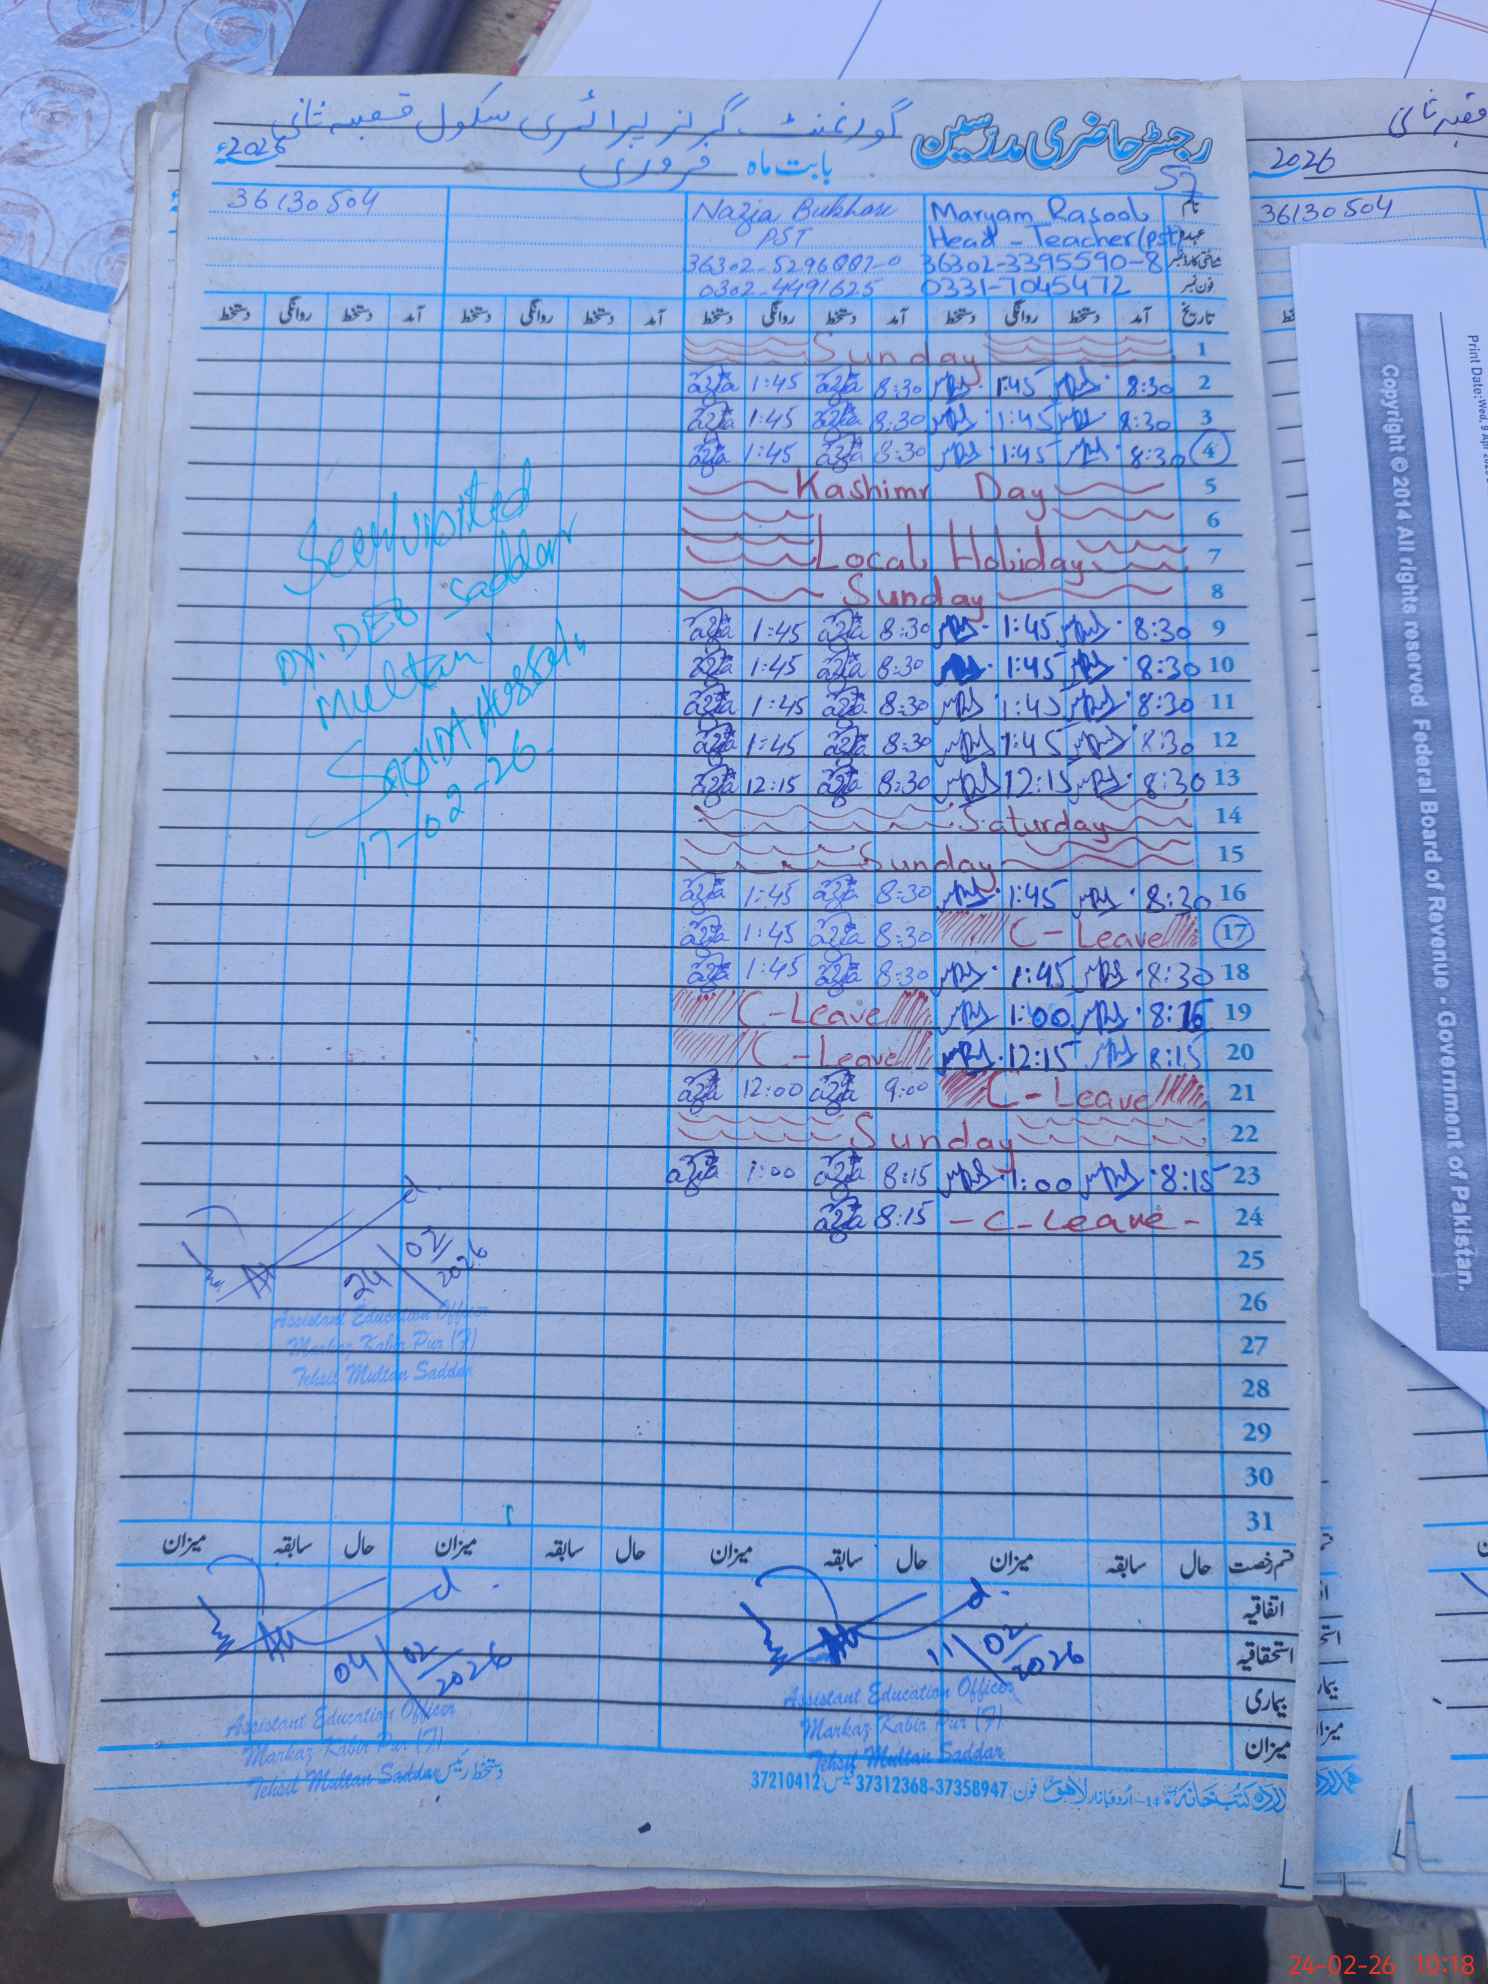 رجسٹر حاضری مدرسین گورنمنٹ گرلز پرائمری سکول قصبہ ثانی
بابت ماہ فروری 2026ء
57
نام Maryam Rasool Nazia Bukhari 36130504
عہدہ Head - Teacher(pst) PST
شناختی کارڈ نمبر 36302-3395590-8
فون نمبر 0331-7045472 0302-4491625
تاریخ آمد دستخط روانگی دستخط آمد دستخط روانگی دستخط آمد دستخط روانگی دستخط آمد دستخط روانگی دستخط
Sunday 1
1:45 8:30 1:45 8:30 2
1:45 8:30 1:45 8:30 3
1:45 8:30 1:45 8:30 4
Kashimr Day 5
6
Local Holiday 7
Sunday 8
1:45 8:30 1:45 8:30 9
1:45 8:30 1:45 8:30 10
1:45 8:30 1:45 8:30 11
1:45 8:30 1:45 8:30 12
12:15 8:30 12:15 8:30 13
Saturday 14
Sunday 15
1:45 8:30 1:45 8:30 16
1:45 8:30 C-Leave 17
1:45 8:30 1:45 8:30 18
C-Leave 1:00 8:15 19
C-Leave 12:15 8:15 20
12:00 9:00 C-Leave 21
Sunday 22
1:00 8:15 1:00 8:15 23
8:15 -C-Leave- 24
25
26
27
28
29
30
31
visited
Dy. DEO Saddar
Multan
17-02-26
24/02/2026
Assistant Education Officer
Markaz Kabir Pur (F)
Tehsil Multan Saddar
قسم رخصت حال سابقہ میزان حال سابقہ میزان حال سابقہ میزان حال سابقہ میزان
اتفاقیہ
استحقاقیہ
بیماری
میزان
04/02/2026
Assistant Education Officer
Markaz Kabir Pur (F)
Tehsil Multan Saddar
11/02/2026
Assistant Education Officer
Markaz Kabir Pur (F)
Tehsil Multan Saddar
دستخط رئیس
اردو بازار لاہور فون 37312368-37358947 فیکس 37210412
قصبہ ثانی
2026ء
36130504
Print Date: Wed, 9 Apr
Copyright © 2014 All rights reserved Federal Board of Revenue - Government of Pakistan.
24-02-26 10:18